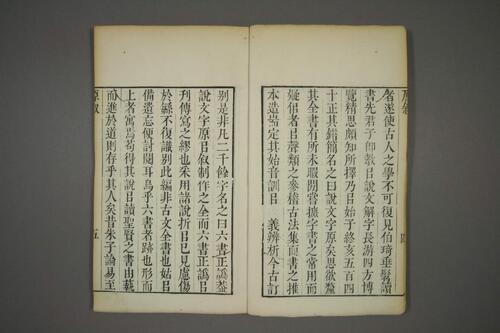 者遂使古人之學不可復見伯琦垂髫讀
書先君子卽敎㠯說文解字長游四方博
覽精思頗知所擇乃㠯始于終亥五百四
十正其錯簡名之曰說文字原矣思欲釐
其全書有所未暇閒嘗摭字書之常用而
疑佀者㠯聲類之參稽古法集而書之推
本造崙定其始音訓㠯義辨析今古訂
别是非凡二千餘字名之曰六書正譌葢
說文字原㠯敘制作之全而六書正譌㠯
刊傳寫之繆也采用諸說折㠯己見慮傷
於繇不復識别此編非古文全書也姑㠯
備遺忘便討閱耳烏乎六書者跡也形而
上者寓焉苟得其說㠯讀聖賢之書由藝
而進於道則存乎其人矣昔朱子論易至
原敘
五